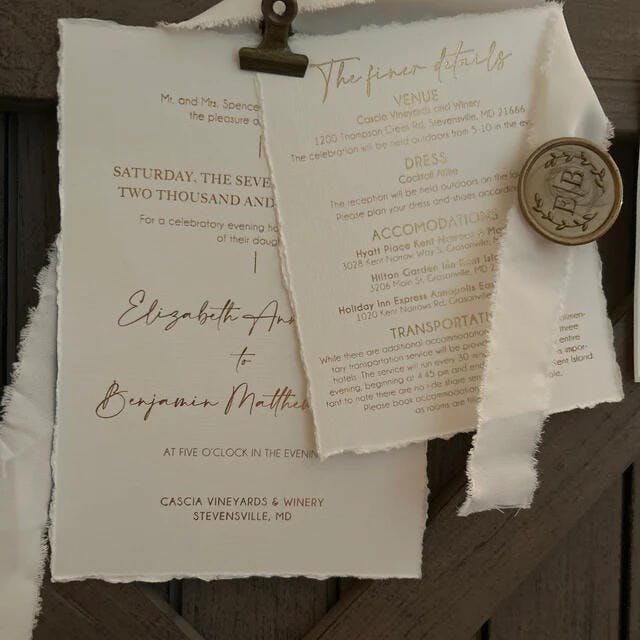 Mr. and Mrs. Spence
the pleasure
SATURDAY, THE SEVE
TWO THOUSAND AND
For a celebratory evening ho
of their daug
Elizabeth Ann
to
Benjamin Matthew
AT FIVE O'CLOCK IN THE EVENIN
CASCIA VINEYARDS & WINERY
STEVENSVILLE, MD
The finer details
VENUE
Cascia Vineyards and Winery
1200 Thompson Creek Rd, Stevensville, MD 21666
The celebration will be held outdoors from 5-10 in the eve
DRESS
Cocktail Attire
The reception will be held outdoors on the
Please plan your dress and shoes accordin
ACCOMODATIONS
Hyatt Place Kent Narrows &
3028 Kent Narrow Way S, Grasonville,
Hilton Garden Inn Kent Isla
3206 Main St, Grasonville, MD
Holiday Inn Express Annapolis Eas
1020 Kent Narrows Rd, Grasonville
TRANSPORTAT
While there are additional accommodation
tary transportation service will be prov three
hotels. The service will run every 30 min entire
evening, beginning at 4:45 pm and en impor-
tant to note there are no ride share ser ent Island.
Please book accommodat
as rooms are
E B